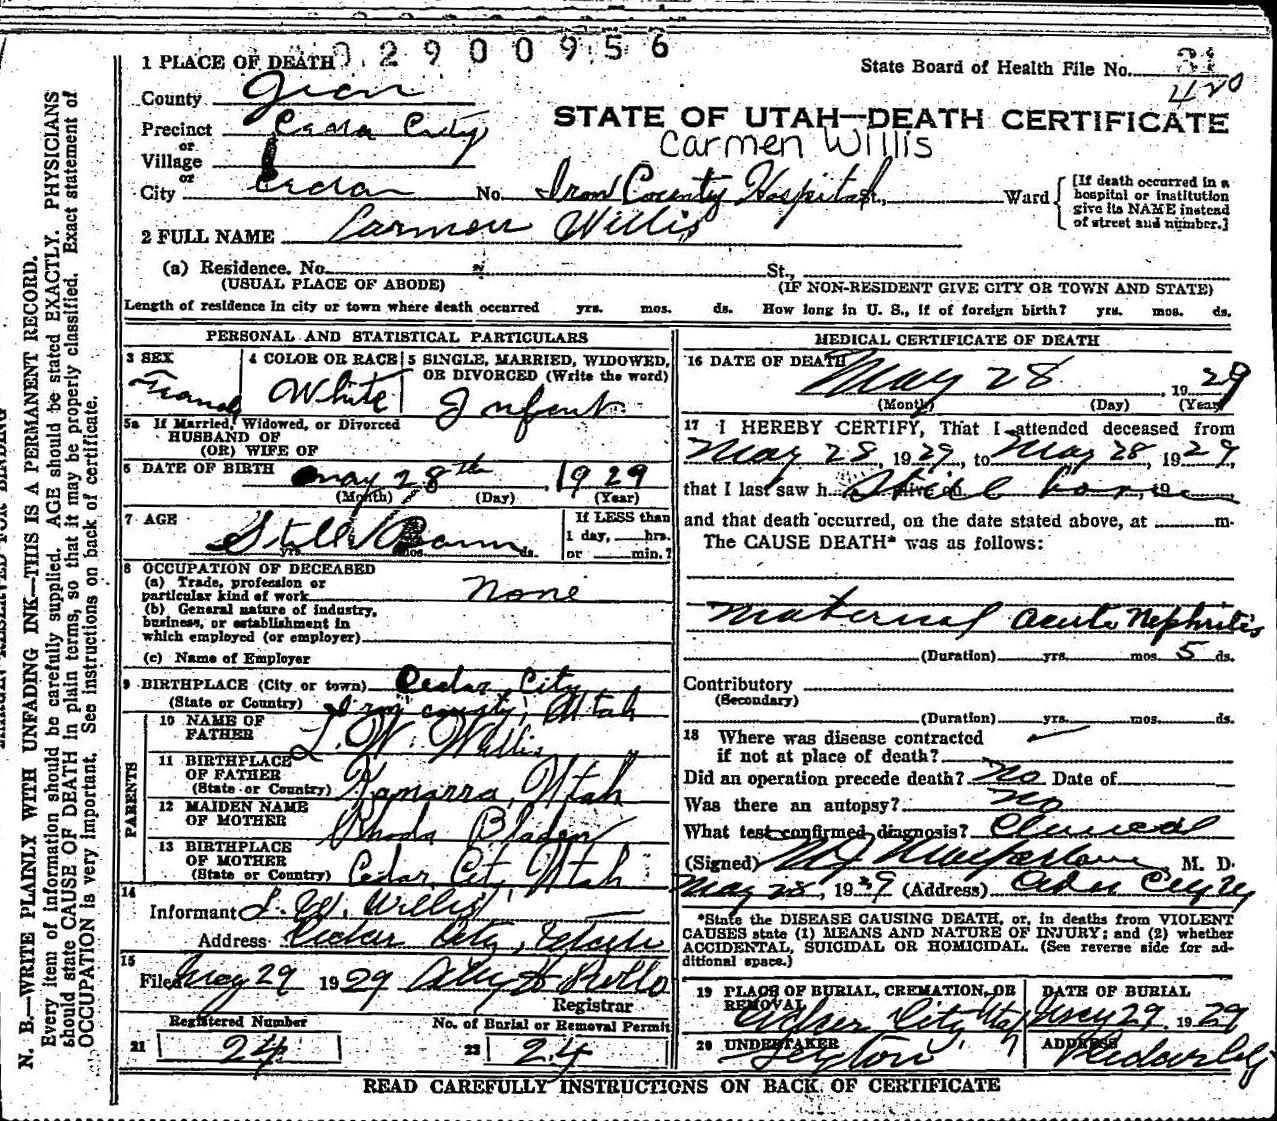 02900956
1 PLACE OF DEATH
State Board of Health File No. 31
420
County Iron
STATE OF UTAH—DEATH CERTIFICATE
Precinct Cedar City
Carmen Willis
or
Village
or
City Cedar No. Iron County Hospital St., Ward
[If death occurred in a
hospital or institution
give its NAME instead
of street and number.]
2 FULL NAME Carmen Willis
(a) Residence. No. St.,
(USUAL PLACE OF ABODE) (IF NON-RESIDENT GIVE CITY OR TOWN AND STATE)
Length of residence in city or town where death occurred yrs. mos. ds. How long in U. S., if of foreign birth? yrs. mos. ds.
PERSONAL AND STATISTICAL PARTICULARS
3 SEX
4 COLOR OR RACE White
5 SINGLE, MARRIED, WIDOWED,
OR DIVORCED (Write the word)
Infant
5a If Married, Widowed, or Divorced
HUSBAND OF
(OR) WIFE OF
6 DATE OF BIRTH May 28th 1929
(Month) (Day) (Year)
7 AGE Still Born
yrs. mos. ds.
If LESS than
1 day, hrs.
or min.?
8 OCCUPATION OF DECEASED
(a) Trade, profession or
particular kind of work None
(b) General nature of industry,
business, or establishment in
which employed (or employer)
(c) Name of Employer
9 BIRTHPLACE (City or town) Cedar City
(State or Country) Iron County, Utah
PARENTS
10 NAME OF
FATHER L. W. Willis
11 BIRTHPLACE
OF FATHER
(State or Country) Kanarra, Utah
12 MAIDEN NAME
OF MOTHER Rhoda Bladen
13 BIRTHPLACE
OF MOTHER
(State or Country) Cedar City Utah
14
Informant L. W. Willis
Address Cedar City, Utah
15
Filed May 29 1929
Registrar
Registered Number
21 24
No. of Burial or Removal Permit
22 24
MEDICAL CERTIFICATE OF DEATH
16 DATE OF DEATH
May 28, 1929
(Month) (Day) (Year)
17 I HEREBY CERTIFY, That I attended deceased from
May 28, 1929, to May 28, 1929,
that I last saw h alive on Still born, 19
and that death occurred, on the date stated above, at m.
The CAUSE DEATH* was as follows:
Maternal acute Nephritis
(Duration) yrs. mos. 5 ds.
Contributory
(Secondary)
(Duration) yrs. mos. ds.
18 Where was disease contracted
if not at place of death?
Did an operation precede death? No Date of
Was there an autopsy? No
What test confirmed diagnosis? Clinical
(Signed) M J Macfarlane, M. D.
May 28, 1929 (Address) Cedar City
*State the DISEASE CAUSING DEATH, or, in deaths from VIOLENT
CAUSES state (1) MEANS AND NATURE OF INJURY; and (2) whether
ACCIDENTAL, SUICIDAL OR HOMICIDAL. (See reverse side for ad-
ditional space.)
19 PLACE OF BURIAL, CREMATION, OR
REMOVAL
City Utah
DATE OF BURIAL
May 29 1929
20 UNDERTAKER
ADDRESS
Cedar City
READ CAREFULLY INSTRUCTIONS ON BACK OF CERTIFICATE
N. B.—WRITE PLAINLY WITH UNFADING INK—THIS IS A PERMANENT RECORD.
Every item of information should be carefully supplied. AGE should be stated EXACTLY. PHYSICIANS
should state CAUSE OF DEATH in plain terms, so that it may be properly classified. Exact statement of
OCCUPATION is very important. See instructions on back of certificate.